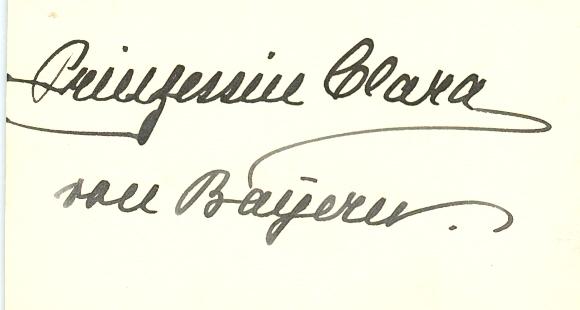 Prinzessin Clara
von Bayern.